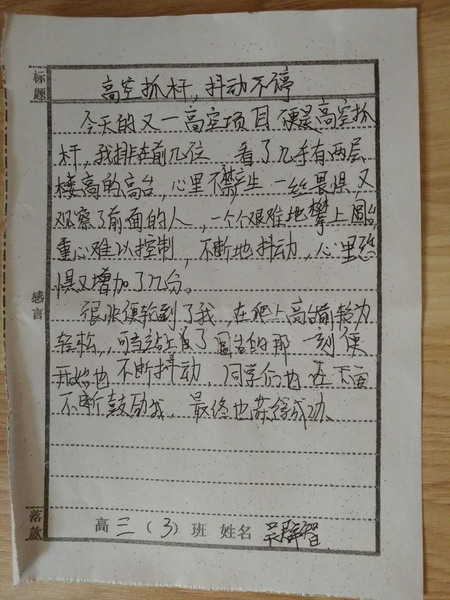 标题
高空抓杆，抖动不停
今天的又一高空项目便是高空抓
杆，我排在前几位 看了几乎有两层
楼高的高台，心里不禁产生一丝畏惧，又
观察了前面的人，一个个艰难地攀上圆台
重心难以控制，不断地抖动，心里恐
惧又增加了几分。
很快便轮到了我，在爬上高台前较为
轻松，可当站上了圆台的那一刻便
开始也不断抖动，同学们也在下面
不断鼓励我，最终也获得成功。
感言
落款
高三（3）班 姓名